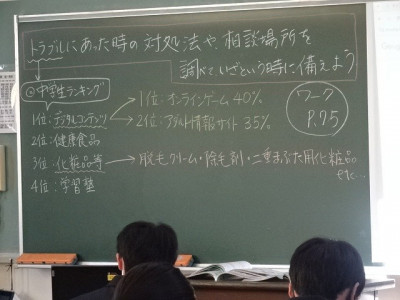 トラブルにあった時の対処法や、相談場所を
調べて、いざという時に備えよう
中学生ランキング
1位:デジタルコンテンツ → 1位:オンラインゲーム 40%
→ 2位:アダルト情報サイト 35%
2位:健康食品
3位:化粧品等 → 脱毛クリーム・除毛剤・二重まぶた用化粧品
etc…
4位:学習塾
ワーク
P.75